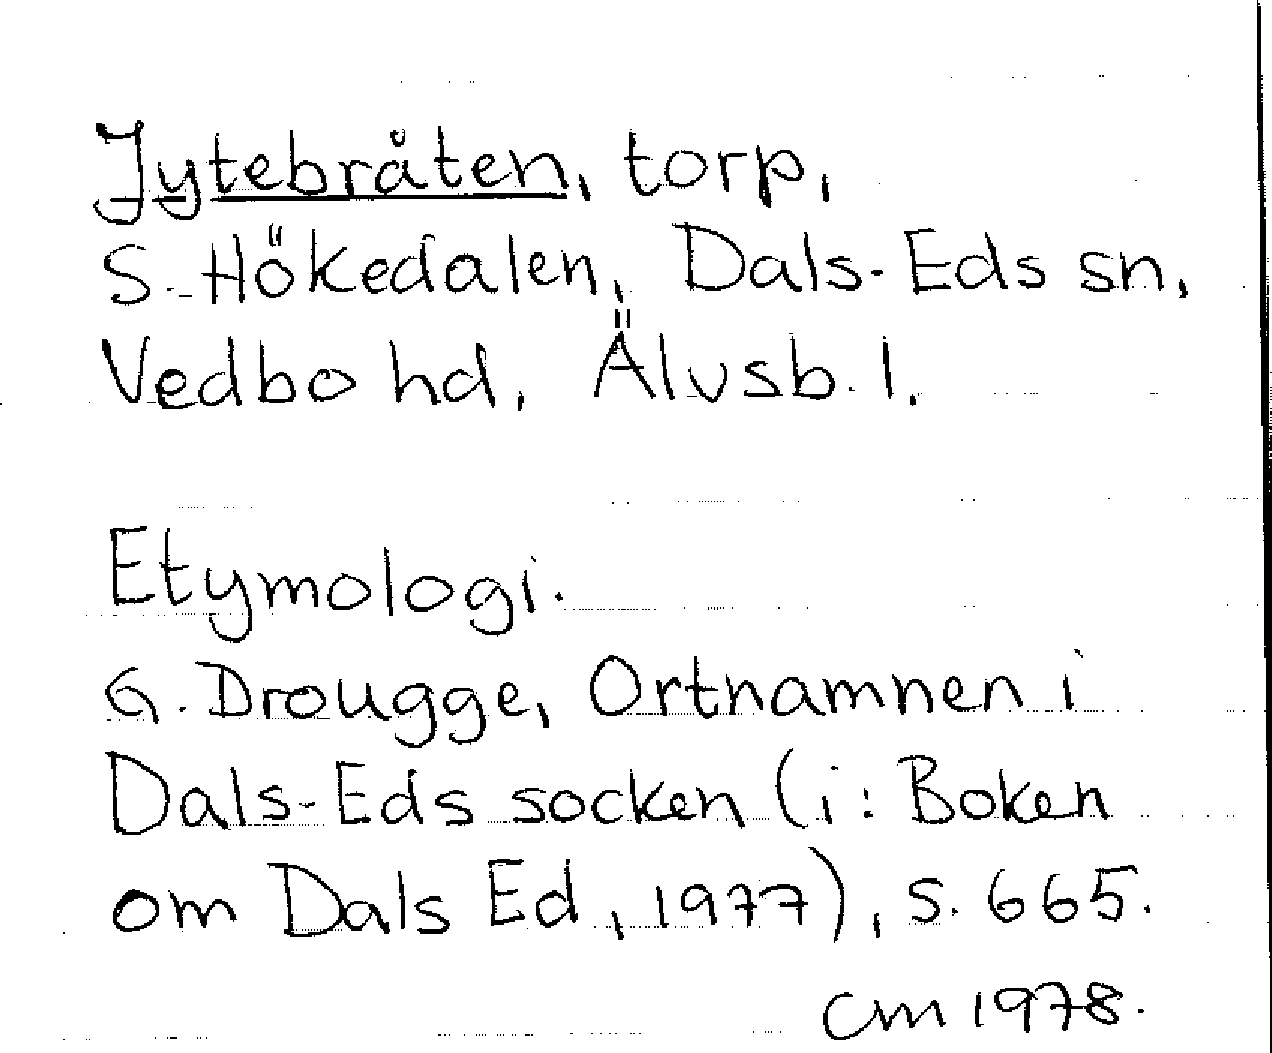 Jytebråten, torp,
S. Hökedalen, Dals-Eds sn,
Vedbo hd, Älvsb. l.
Etymologi.
G. Drougge, Ortnamnen i
Dals-Eds socken (i: Boken
om Dals Ed, 1977), s. 665.
CM 1978.